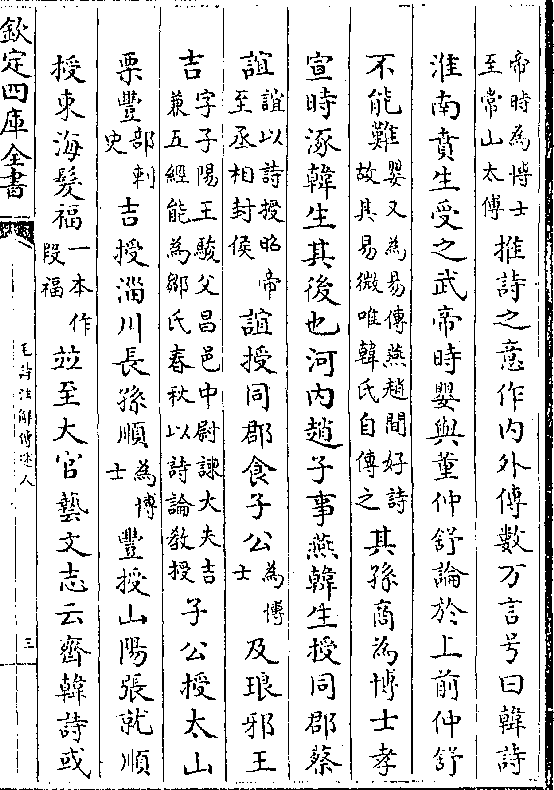 帝時為博士至常山太傅推詩之意作內外傳數万言号曰韓詩
淮南賁生受之武帝時嬰與董仲舒論於上前仲舒
不能難嬰又為易傳燕趙間好詩故其易微唯韓氏自傳之其孫商為博士孝
宣時涿韓生其後也河內趙子事燕韓生授同郡蔡
誼誼以詩授昭帝至丞相封侯誼授同郡食子公為博士及琅邪王
吉字子陽王駿父昌邑中尉諫大夫吉兼五經能為鄒氏春秋以詩論教授子公授太山
栗豐部刺史吉授淄川長孫順為博士豐授山陽張就順
授東海髮福一本作段福竝至大官藝文志云齊韓詩或
欽定四庫全書
毛詩注解傳述人
三